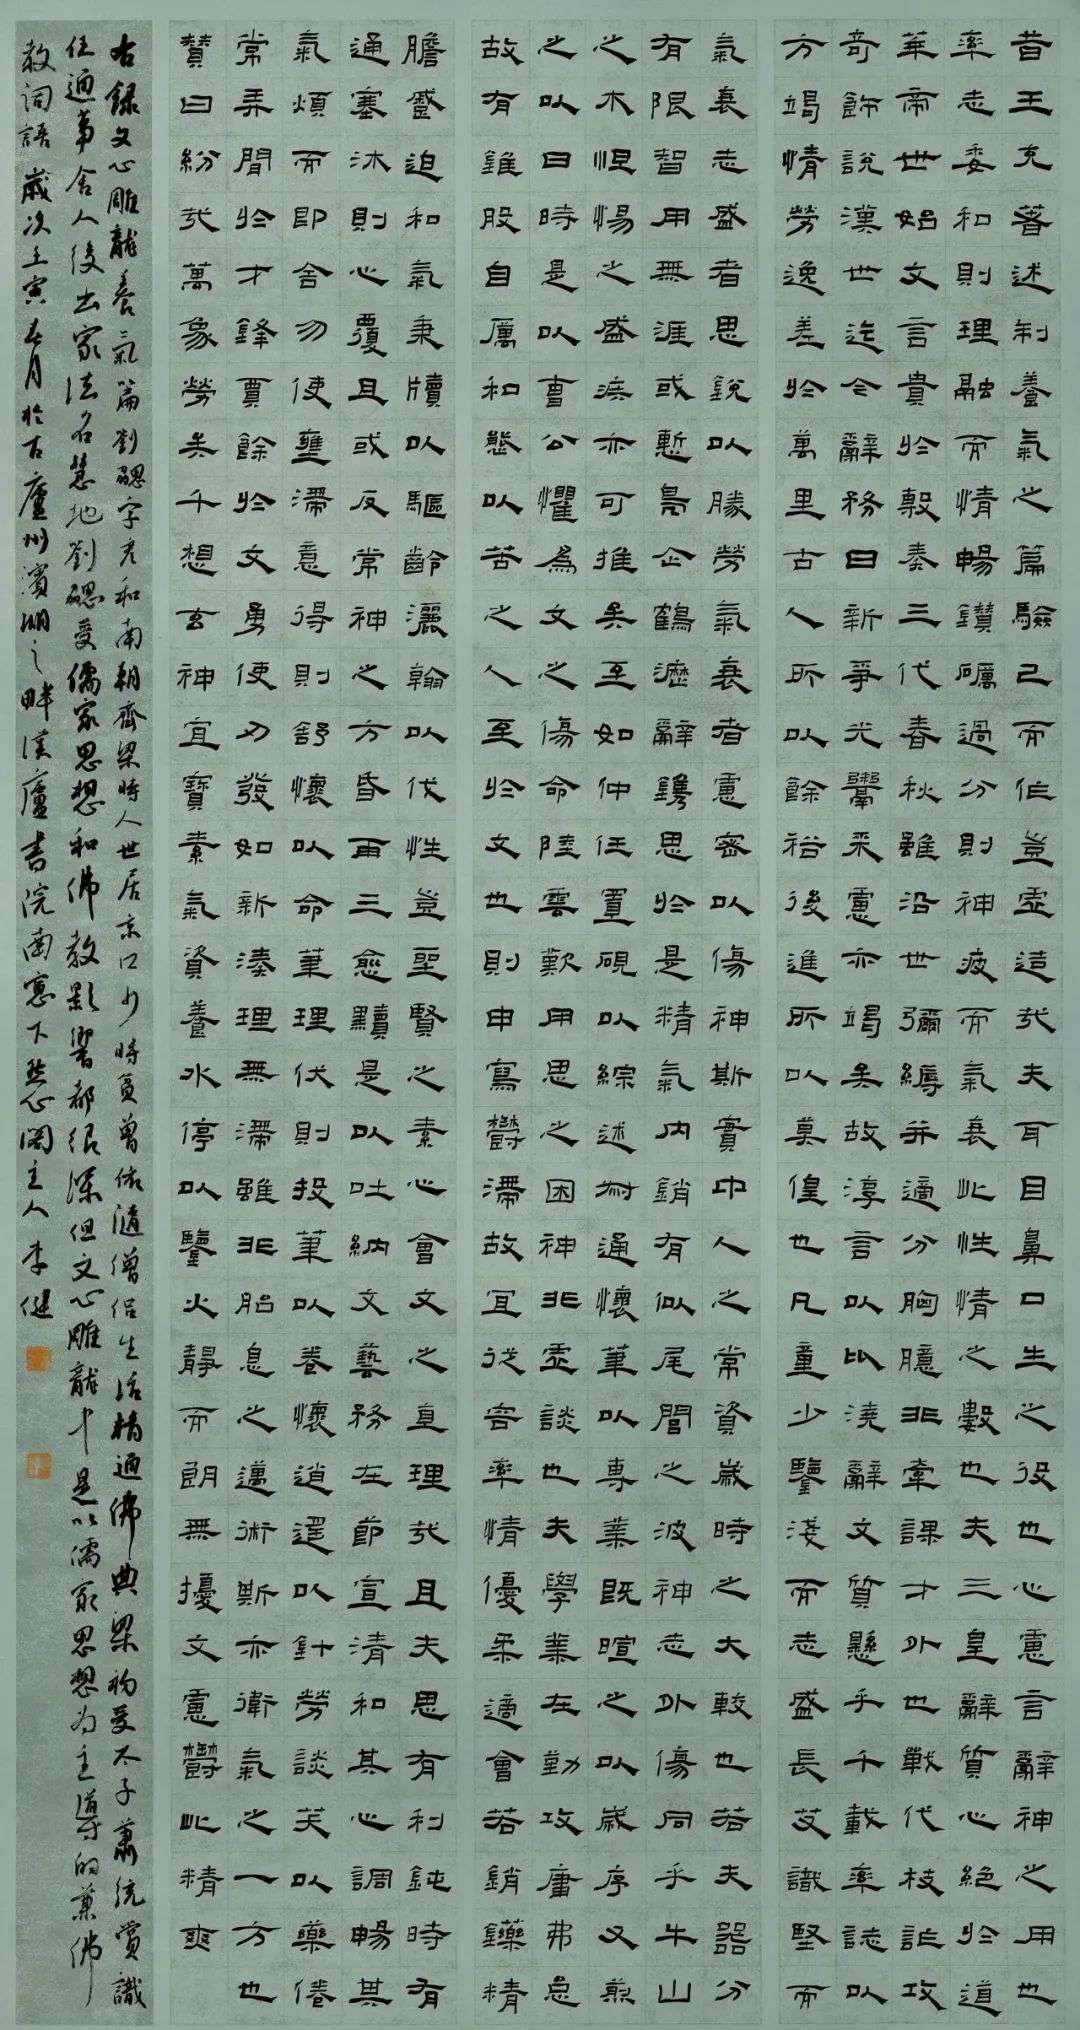 昔王充著述制養氣之篇驗己而作豈虛造哉夫耳目鼻口生之役也心慮言辭神之用也
率志委和則理融而情暢鑽礪過分則神疲而氣衰此性情之數也夫三皇辭質心絕於道
華帝世始文言貴於敷奏三代春秋雖沿世彌縟并適分胸臆非牽課才外也戰代枝詐攻
奇飾說漢世迄今辭務日新爭光鬻采慮亦竭矣故淳言以比澆辭文質懸乎千載率誌以
方竭情勞逸差於萬里古人所以餘裕後進所以莫偟也凡童少鑒淺而志盛長艾識堅而
氣衰志盛者思銳以勝勞氣衰者慮密以傷神斯實中人之常資歲時之大較也若夫器分
有限智用無涯或慙鳧企鶴瀝辭鐫思於是精氣內銷有似尾閭之波神志外傷同乎牛山
之木怛惕之盛疾亦可推矣至如仲任置硯以綜述叔通懷筆以專業既暄之以歲序又煎
之以日時是以曹公懼為文之傷命陸雲歎用思之困神非虛談也夫學業在勤攻庸弗怠
故有錐股自厲和熊以苦之人至於文也則申寫鬱滯故宜從容率情優柔適會若銷鑠精
膽蹙迫和氣秉牘以驅齡灑翰以伐性豈聖賢之素心會文之直理哉且夫思有利鈍時有
通塞沐則心覆且或反常神之方昏再三愈黷是以吐納文藝務在節宣清和其心調暢其
氣煩而即舍勿使壅滯意得則舒懷以命筆理伏則投筆以卷懷逍遙以針勞談笑以藥倦
常弄閒於才鋒賈餘於文勇使刃發如新湊理無滯雖非胎息之邁術斯亦衛氣之一方也
贊曰紛哉萬象勞矣千想玄神宜寶素氣資養水停以鑒火靜而朗無擾文慮鬱此精爽
右錄文心雕龍養氣篇劉勰字彥和南朝齊梁時人世居京口少時貧曾依隨僧侶生活精通佛典梁初受太子蕭統賞識
任通事舍人後出家法名慧地劉勰受儒家思想和佛教影響都很深但文心雕龍中是以儒家思想為主導的兼佛
教詞語歲次壬寅春月於古廬州濱湖之畔漢廬書院南窗下心閣主人李健